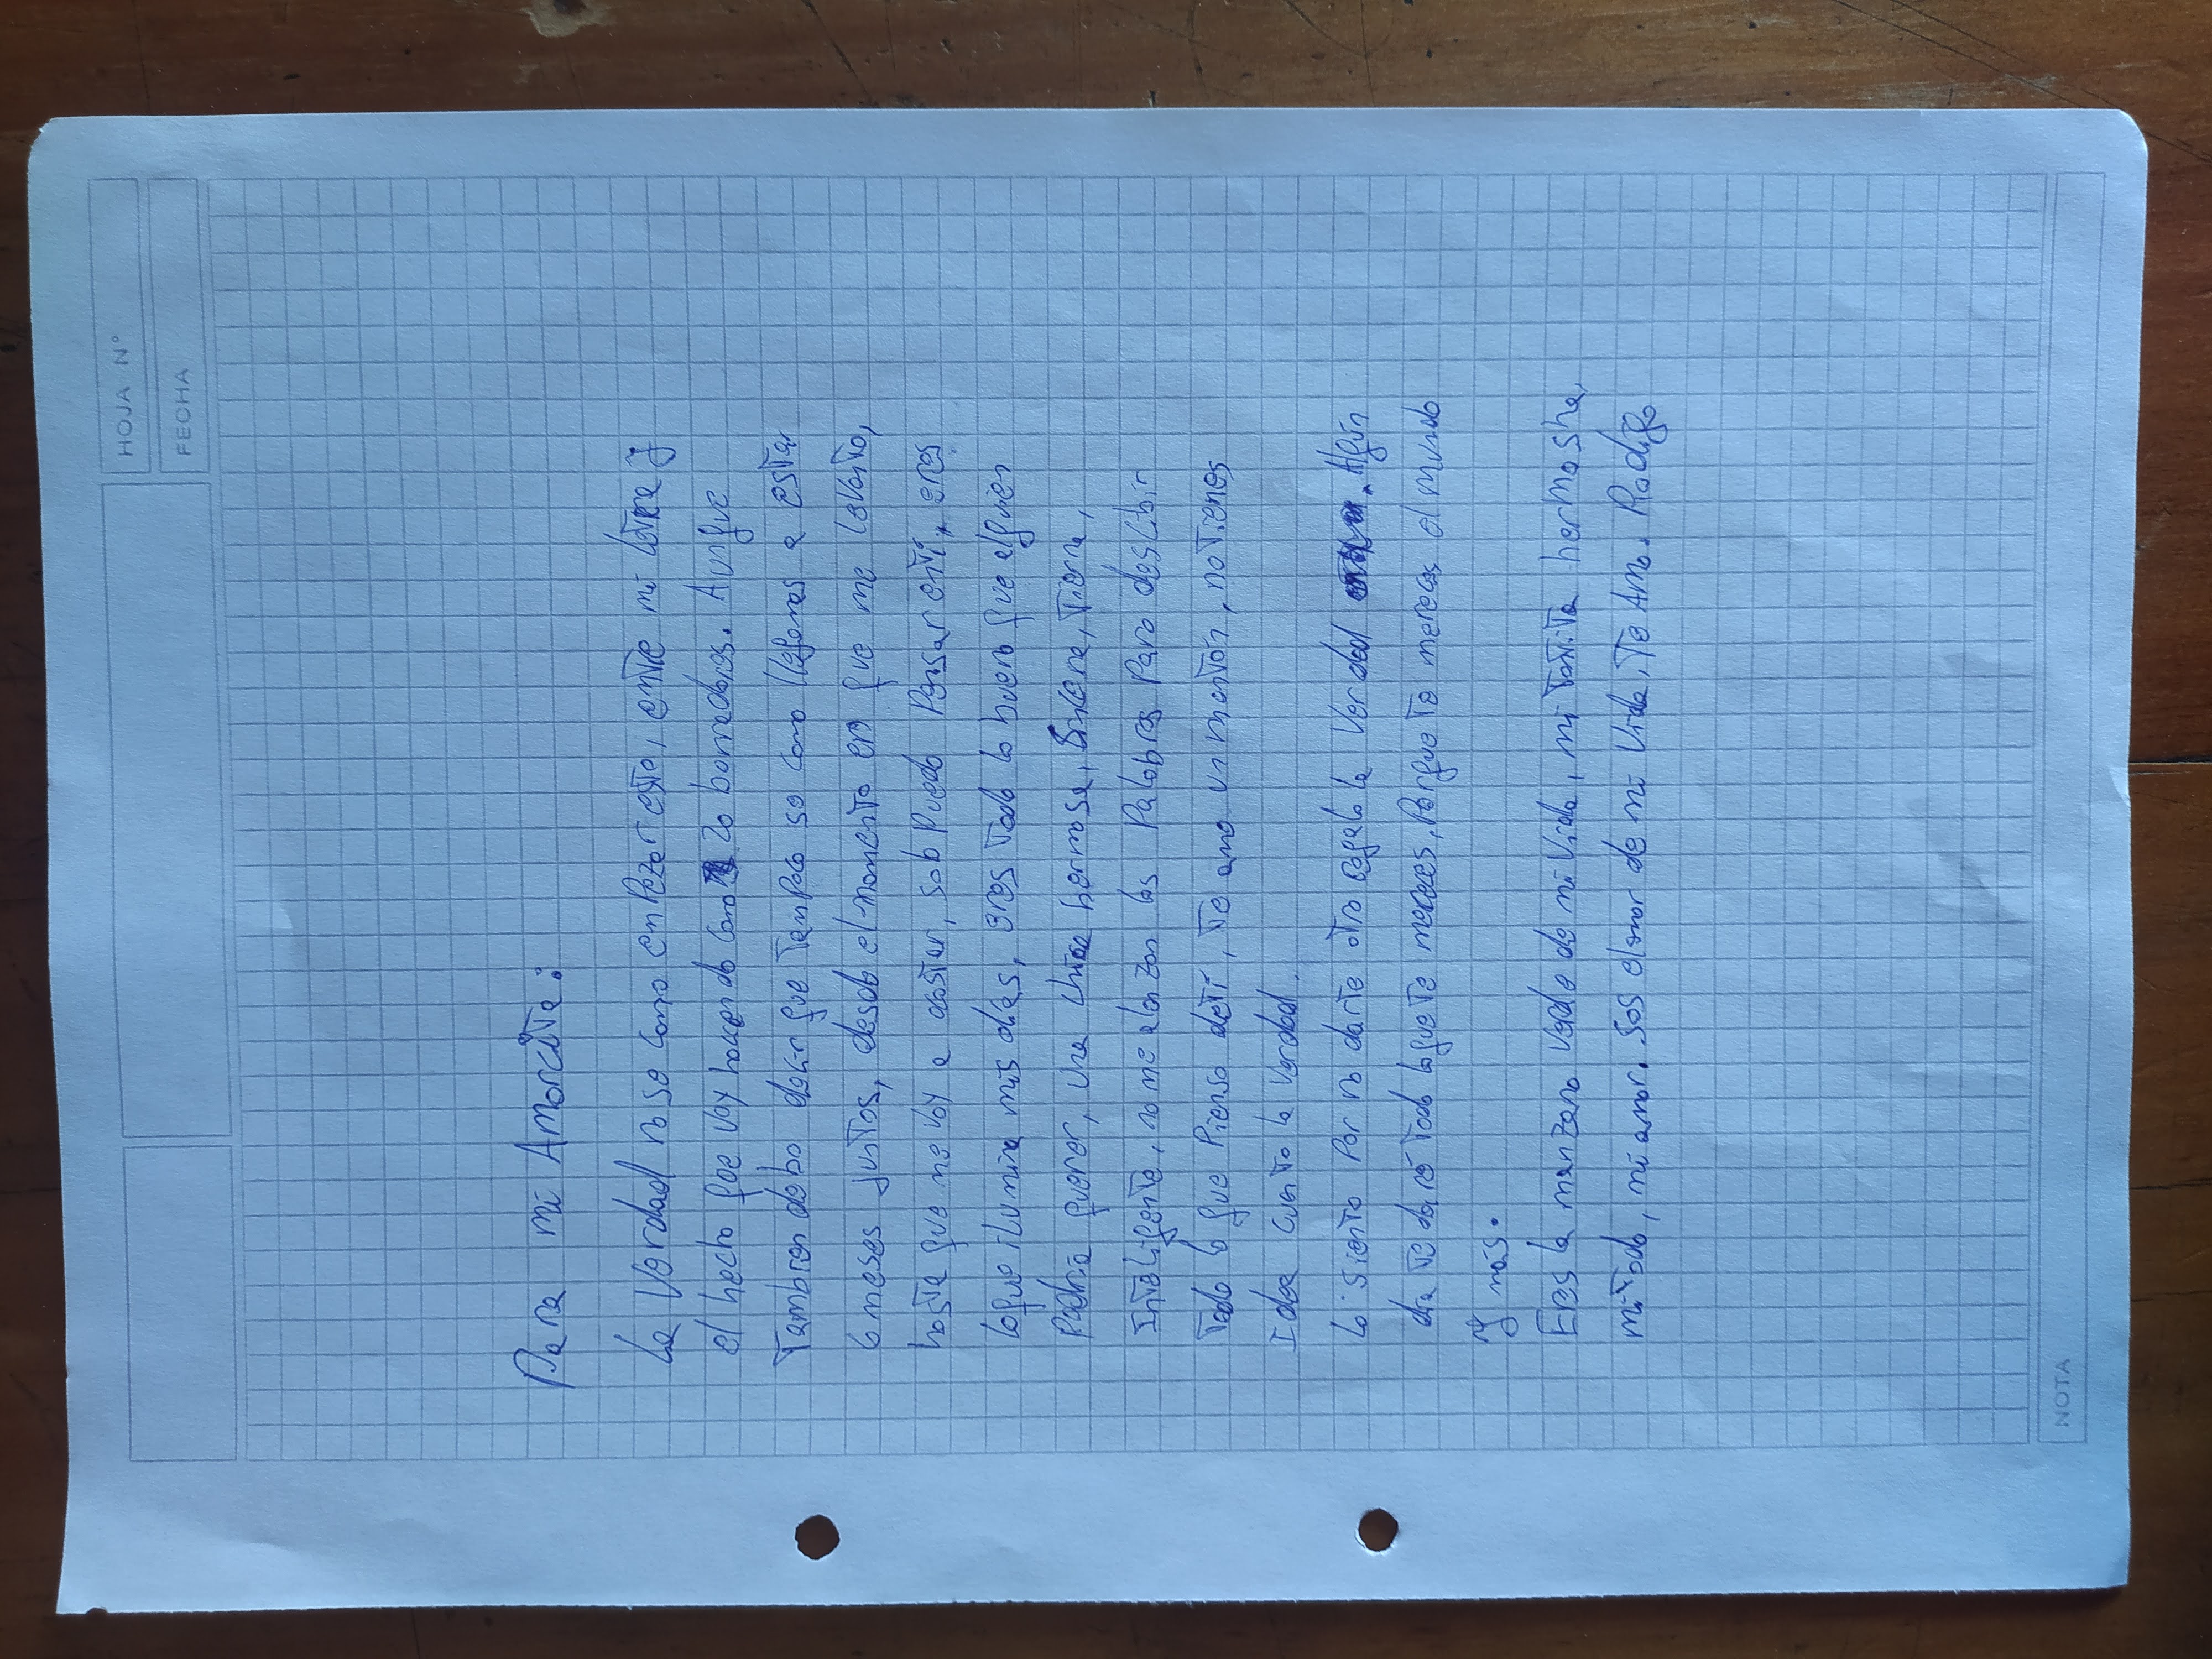 HOJA N°
FECHA
Para mi Amorcito:
La Verdad no se como empezar esto, entre mi letra y
el hecho que voy haciendo como 20 borradores. Aunque
Tambien debo decir que Tampoco se como llegamos a estar
6 meses juntos, desde el momento en que me levanto,
hasta que me voy a acostar, solo Puedo Pensar en ti, eres
lo que ilumina mis dias, eres Todo lo bueno que alguien
Podria querer, una chica hermosa, Sincera, Tierna,
Inteligente, no me alcanzan las Palabras Para describir
Todo lo que Pienso de ti, Te amo un monton, no Tienes
Idea cuanto la Verdad.
Lo siento Por no darte otro regalo la Verdad . Algún
dia te daré Todo lo que te mereces, Porque te mereces el mundo
y más.
Eres la manzana verde de mi Vida, mi Tontita hermosha,
mi Todo, mi amor. Sos el amor de mi Vida, Te Amo. Rodigo
NOTA